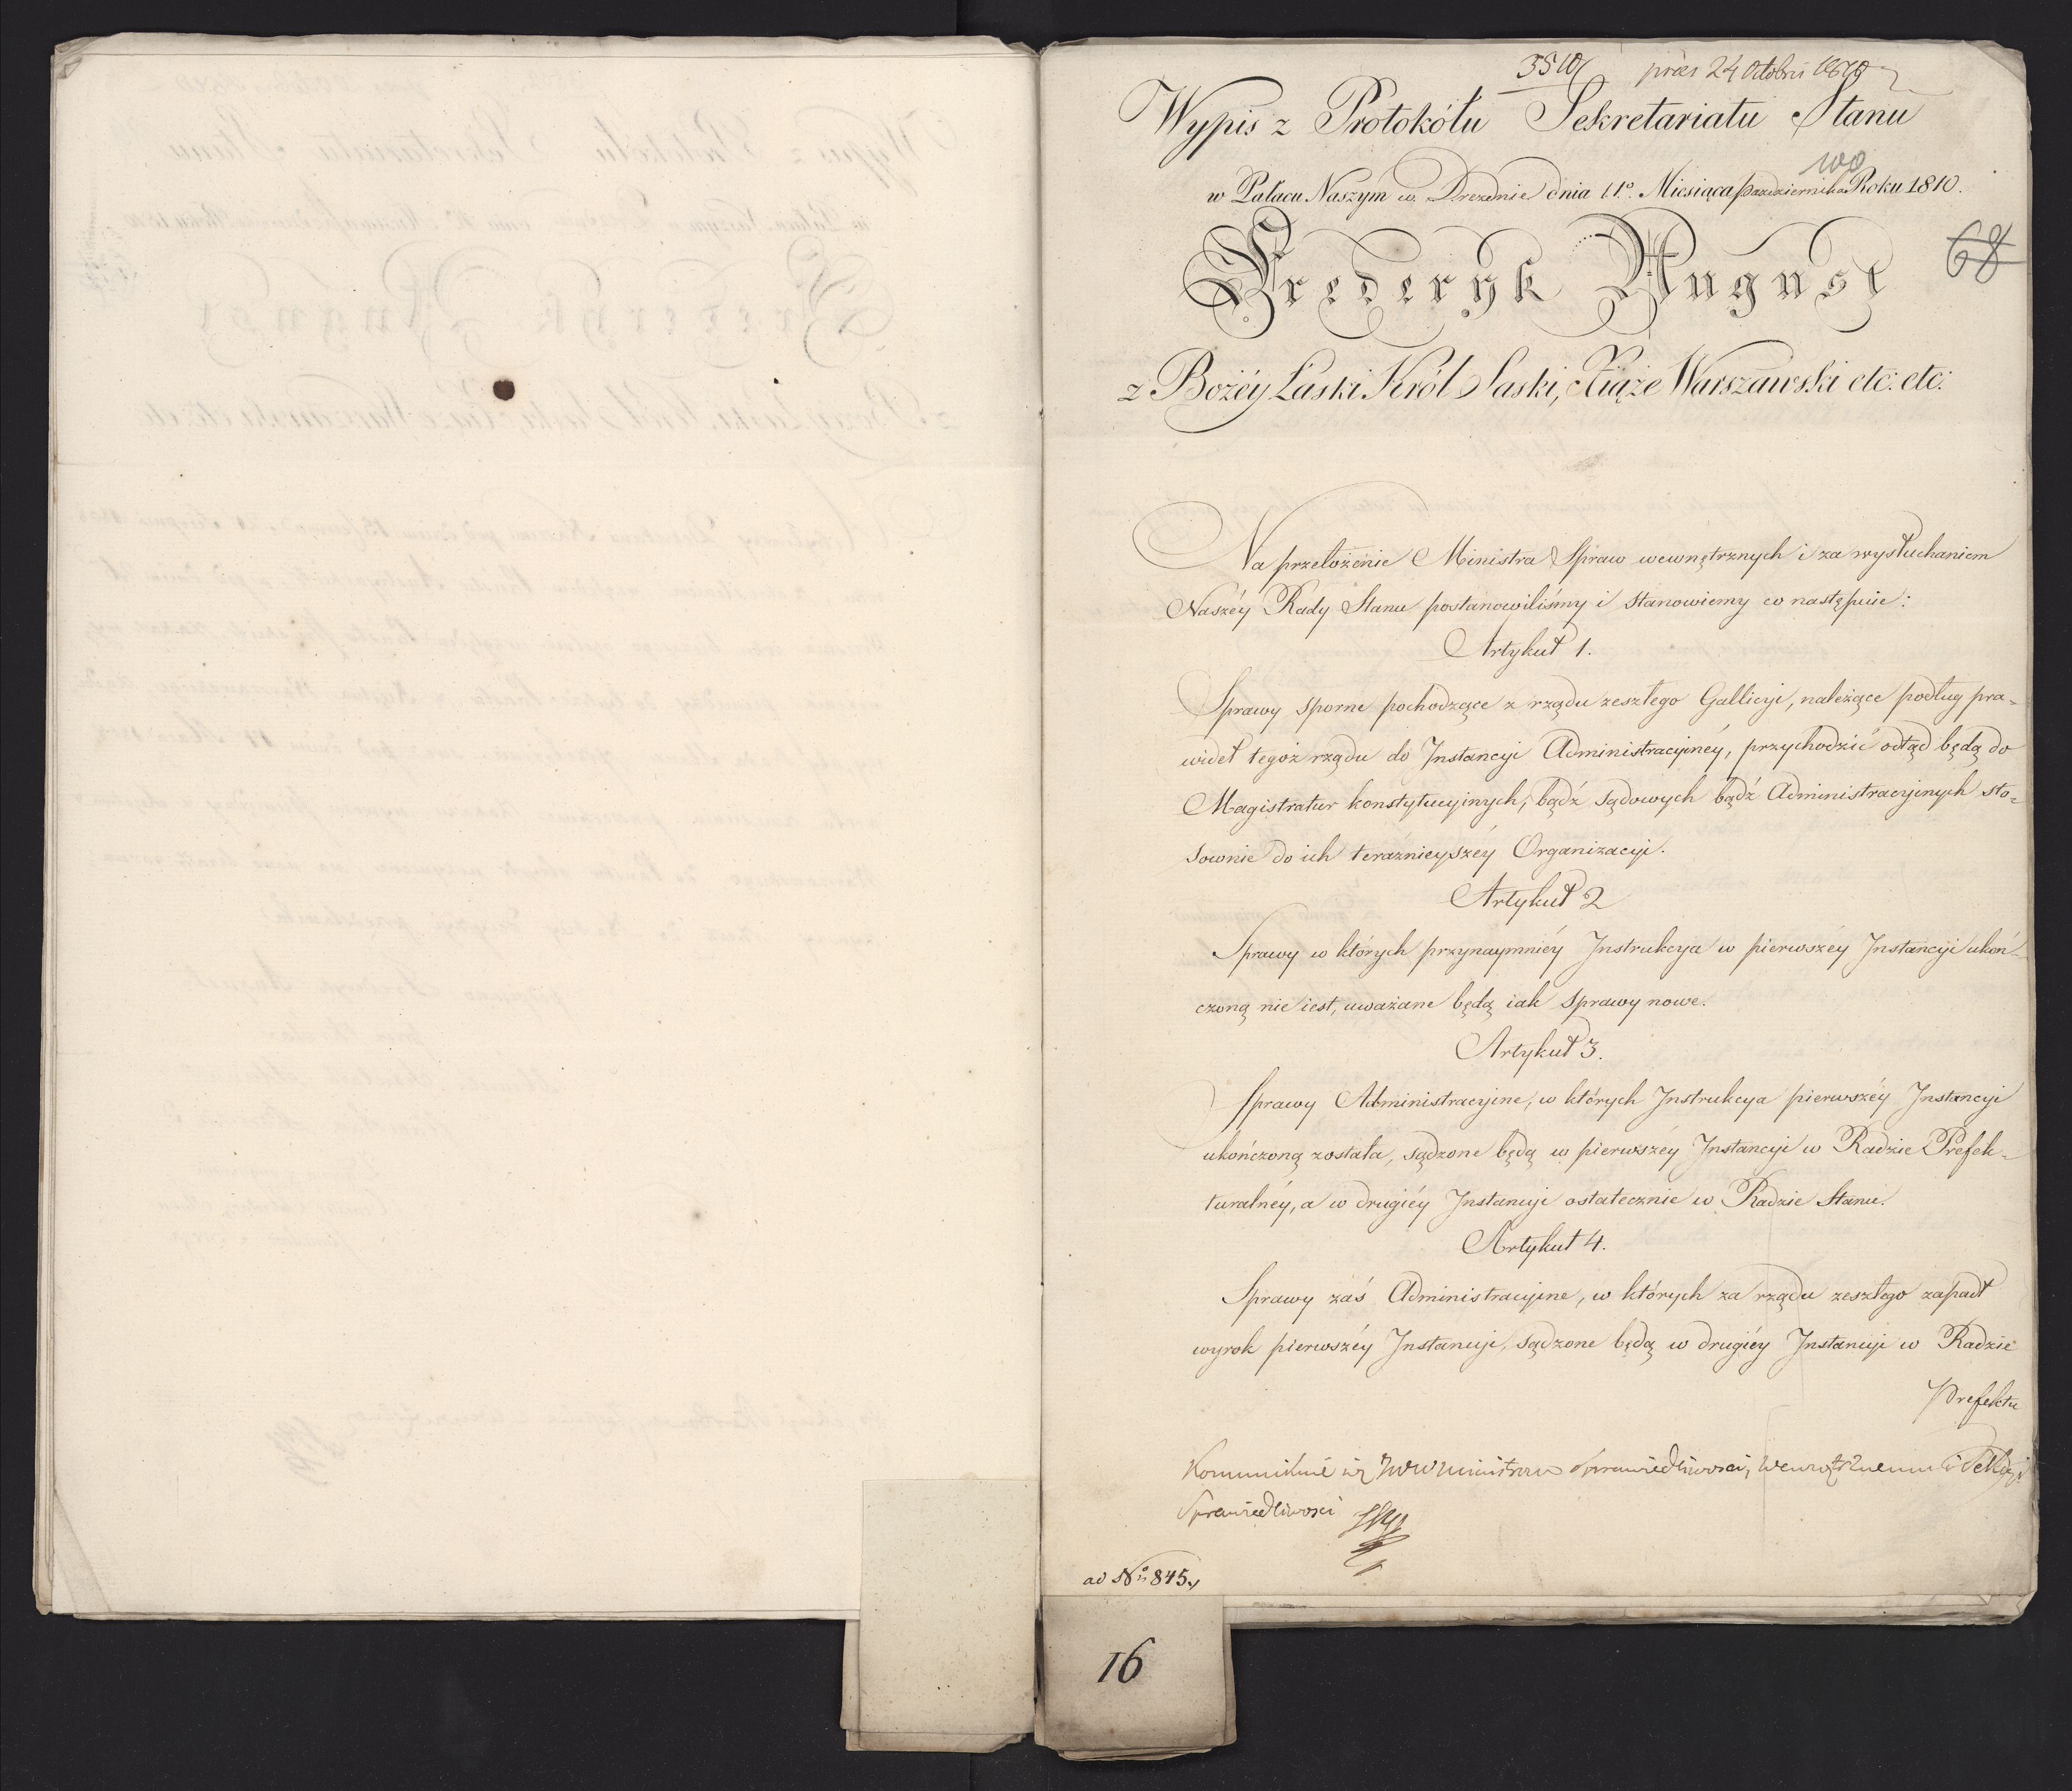 3510 præs 24 Octobris 1810
Wypis z Protokółu Sekretariatu Stanu
100
w Pałacu Naszym w Dreznie dnia 11º. Miesiąca Pazdziernika Roku 1810.
Frederyk August
68
z Bożéy Łaski Król Saski, Xiąże Warszawski etc: etc:
Na przełożenie Ministra Spraw wewnętrznych i za wysłuchaniem
Naszéy Rady Stanu postanowiliśmy i stanowiemy co następuie:
Artykuł 1.
Sprawy sporne pochodzące z rządu zeszłego Gallicyi, należące podług pra-
wideł tegoż rządu do Instancyi Administracyinéy, przychodzić odtąd będą do
Magistratur konstytucyinych, bądź sądowych bądź Administracyinych sto-
sownie do ich teraźnieyszéy Organizacyi.
Artykuł 2
Sprawy w których przynaymniéy Instrukcya w pierwszéy Instancyi ukoń-
czoną nie iest, uważane będą iak sprawy nowe.
Artykuł 3.
Sprawy Administracyine, w których Instrukcya pierwszéy Instancyi
ukończoną została, sądzone będą w pierwszéy Instancyi w Radzie Prefek-
turalnéy, a w drugiéy Instancyi ostatecznie w Radzie Stanu.
Artykuł 4.
Sprawy zaś Administracyine, w których za rządu zeszłego zapadł
wyrok pierwszéy Instancyi, sądzone będą w drugiéy Instancyi w Radzie
Prefektu
Ministrom Sprawiedliwosci, Wewnętrznemu i
Sprawiedliwosci
ad Nº 845.
16